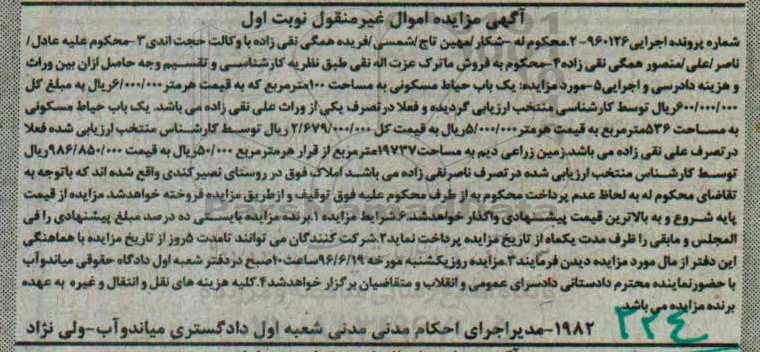 آگهی مزایده اموال غیرمنقول نوبت اول
شماره پرونده اجرایی۹۶۰۱۲۶-۲.محکوم له-شکار/مهین تاج/شمسی/فریده همگی نقی زاده با وکالت حجت اندی۳-محکوم علیه عادل/
ناصر/علی/منصور همگی نقی زاده۴-محکوم به فروش ماترک عزت اله نقی طبق نظریه کارشناسی و تقسیم وجه حاصل ازان بین وراث
و هزینه دادرسی و اجرایی۵-مورد مزایده: یک باب حیاط مسکونی به مساحت ۱۰۰مترمربع که به قیمت هرمتر۶/۰۰۰/۰۰۰ریال به مبلغ کل
۶۰۰/۰۰۰/۰۰۰ریال توسط کارشناسی منتخب ارزیابی گردیده و فعلا در تصرف یکی از وراث علی نقی زاده می باشد. یک باب حیاط مسکونی
به مساحت ۵۳۶مترمربع به قیمت هرمتر ۵/۰۰۰/۰۰۰ریال به قیمت کل ۲/۶۷۹/۰۰۰/۰۰۰ ریال توسط کارشناس منتخب ارزیابی شده فعلا
درتصرف علی نقی زاده می باشد.زمین زراعی دیم به مساحت۱۹۷۳۷مترمربع از قرار هرمترمربع ۵۰/۰۰۰ریال به قیمت ۹۸۶/۸۵۰/۰۰۰ریال
توسط کارشناس منتخب ارزیابی شده در تصرف ناصرنقی زاده می باشد املاک فوق در روستای نصیرکندی واقع شده اند که باتوجه به
تقاضای محکوم له به لحاظ عدم پرداخت محکوم به از طرف محکوم علیه فوق توقیف و ازطریق مزایده فروخته خواهدشد مزایده از قیمت
پایه شروع و به بالاترین قیمت پیشنهادی واگذار خواهدشد.۶شرایط مزایده ۱.برنده مزایده بایستی ده درصد مبلغ پیشنهادی را فی
المجلس و مابقی را ظرف مدت یکماه از تاریخ مزایده پرداخت نماید۲.شرکت کنندگان می توانند تامدت ۵روز از تاریخ مزایده با هماهنگی
این دفتر از مال مورد مزایده دیدن فرمایند۳.مزایده روزیکشنبه مورخه ۹۶/۶/۱۹ساعت۱۰صبح در دفتر شعبه اول دادگاه حقوقی میاندوآب
با حضورنماینده محترم دادستانی دادسرای عمومی و انقلاب و متقاضیان برگزار خواهدشد۴.کلیه هزینه های نقل و انتقال و غیره به عهده
برنده مزایده می باشد.
۱۹۸۲-مدیراجرای احکام مدنی مدنی شعبه اول دادگستری میاندوآب-ولی نژاد
۳۲۴